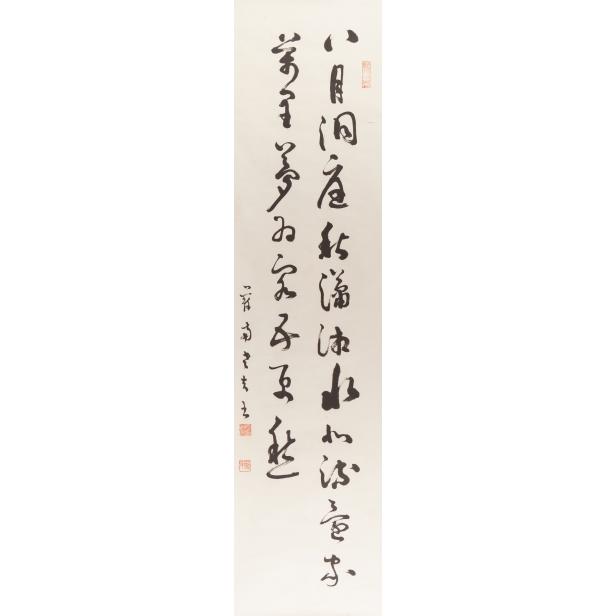 八月洞庭秋瀟湘水北流還家
萬里夢為客五更愁